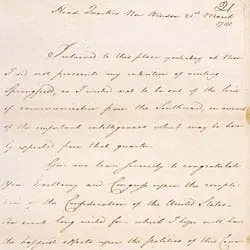 21
Head Quarters New Windsor 21st March
1781
I returned to this place yesterday at Noon
I did not prosecute my intention of visiting
Springfield, as I wished not to be out of the line
of communication from the Southward, in moments
of the important intelligence which may be hourly
expected from that quarter.
Give me leave sincerely to congratulate
Your Excellency and Congress upon the completion
of the Confederation of the United States
An event long wished for which I hope will have
the happiest effects upon the politics of this